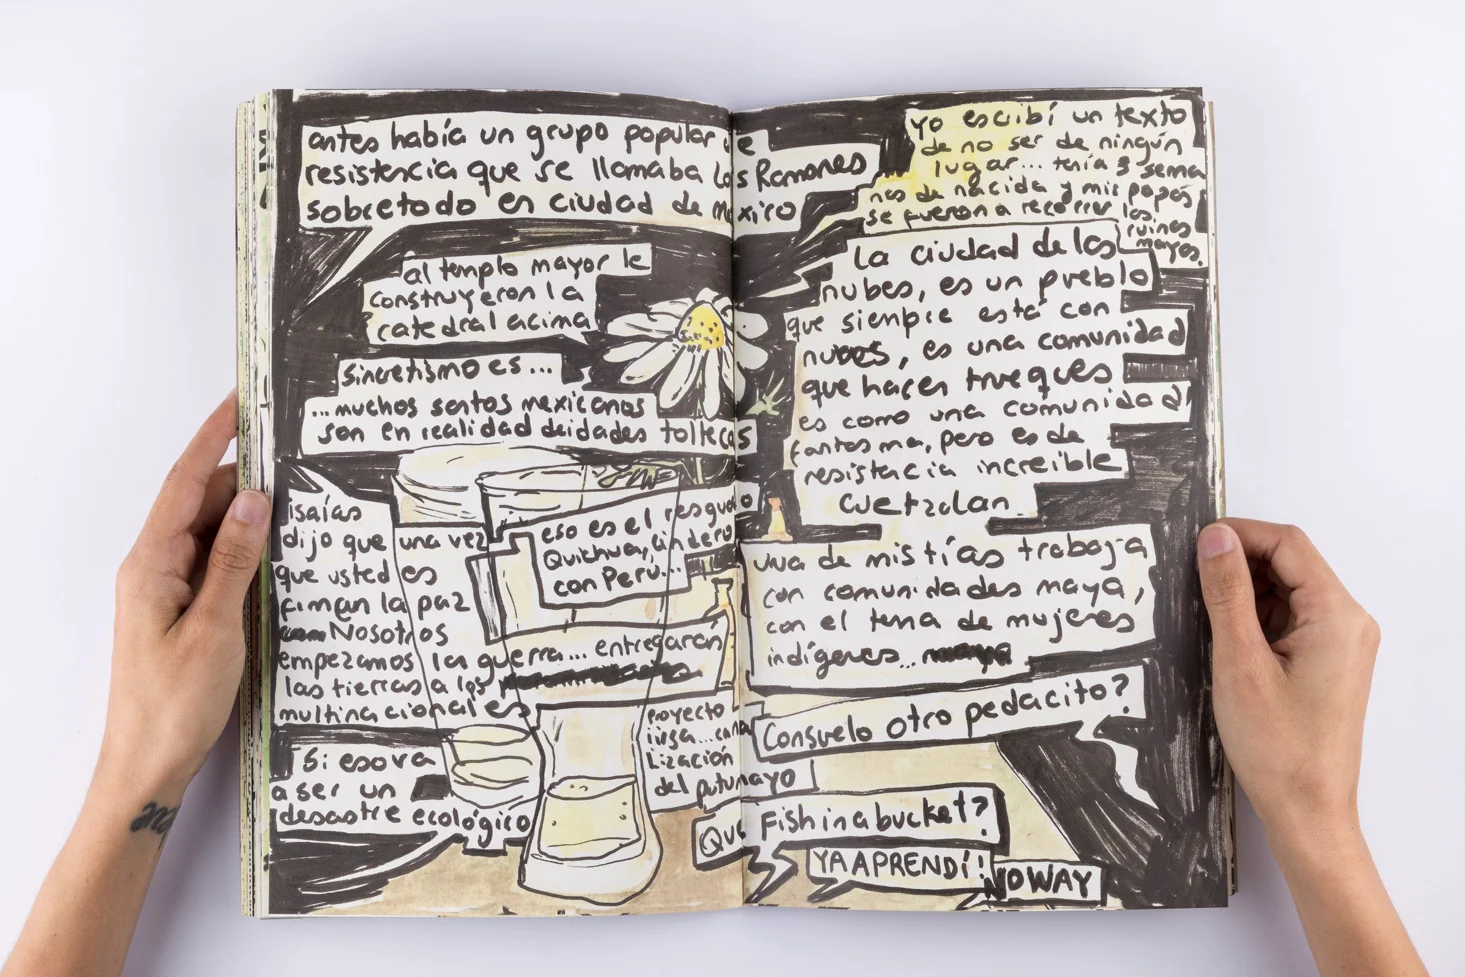 antes había un grupo popular de
resistencia que se llamaba Los Ramones
sobretodo en ciudad de México
al templo mayor le
construyeron la
catedral acima
sincretismo es...
...muchos santos mexicanos
son en realidad deidades toltecas
isaías
dijo que una vez
que usted es
firman la paz
Nosotros
empezamos la guerra... entregarán
las tierras a los
multinacionales
eso es el resguardo
Quichua, lindero
con Perú...
Si eso va
a ser un
desastre ecológico
proyecto
iirsa... cana
lización
del putumayo
Yo escribí un texto
de no ser de ningún
lugar... tenía 3 sema
nas de nacida y mis papás
se fueron a recorrer las
ruinas
mayas.
La ciudad de las
nubes, es un pueblo
que siempre está con
nubes, es una comunidad
que hacen trueques
es como una comunidad
fantasma, pero es de
resistencia increible
Cuetzalan
una de mis tías trabaja
con comunidades maya,
con el tema de mujeres
indígenes... maya
Consuelo otro pedacito?
Que Fish in a bucket?
YA APRENDÍ!
NO WAY